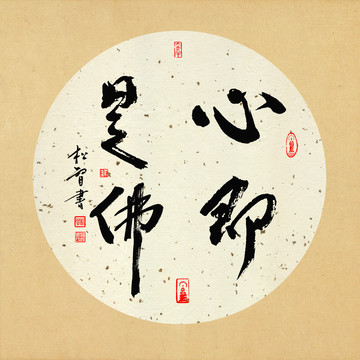 心即
是佛
松智書